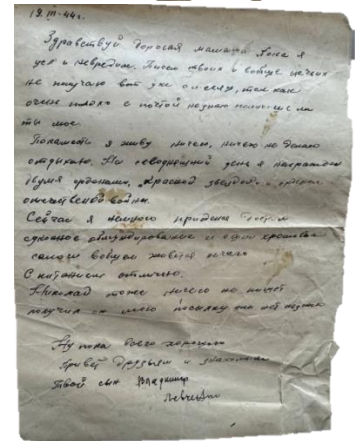 19.III-44г.
Здравствуй дорогая мамаша пока я
цел и невредим. Писем твоих и вобще ничьих
не получаю вот уже месяц, так как
очень плохо с почтой незнаю получаеш ли
ты мое.
Покамисть я живу ничего, ничего не делаю
отдыхаю. На севоднешний день я награжден
двумя орденами, Красной звездой и орденом
отечественой войны.
Сейчас я немного
самом вобщем живется ничего
С питанием отлично.
Николай тоже ничего не пишет
получил он мою посылку или нет незнаю
Ну пока всего хорошего
Привет друзьям и знакомым
Твой сын Владимир